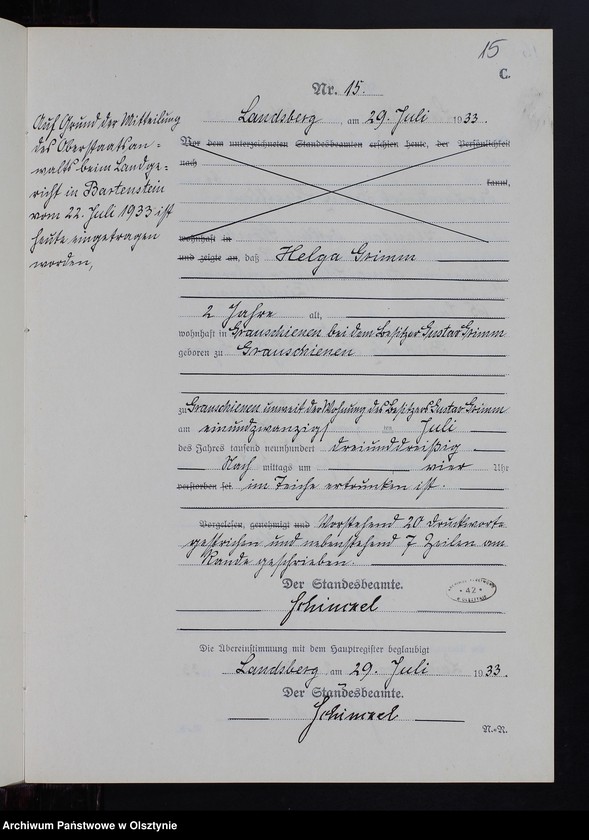 15
C.
Nr. 15.
Landsberg, am 29. Juli 1933.
Auf Grund der Mitteilung
des Oberstaatsan-
walts beim Landge-
richt in Bartenstein
vom 22. Juli 1933 ist
heute eingetragen
worden,
Vor dem unterzeichneten Standesbeamten erschien heute, der Persönlichkeit
nach
kannt,
wohnhaft in
und zeigte an, daß Helga Grimm
2 Jahre alt,
wohnhaft in Grauschienen bei dem Besitzer Gustav Grimm
geboren zu Grauschienen
zu Grauschienen unweit der Wohnung des Besitzers Gustav Grimm
am einundzwanzigs Juli
des Jahres tausend neunhundert dreiunddreißig
Nach mittags um vier Uhr
verstorben sei. im Teiche ertrunken ist.
Vorgelesen, genehmigt und Vorstehend 20 Druckworte
gestrichen und nebenstehend 7 Zeilen am
Rande geschrieben.
Der Standesbeamte.
Schinckel
42
Die Übereinstimmung mit dem Hauptregister beglaubigt
Landsberg am 29. Juli 1933.
Der Standesbeamte.
Schinckel
Archiwum Państwowe w Olsztynie